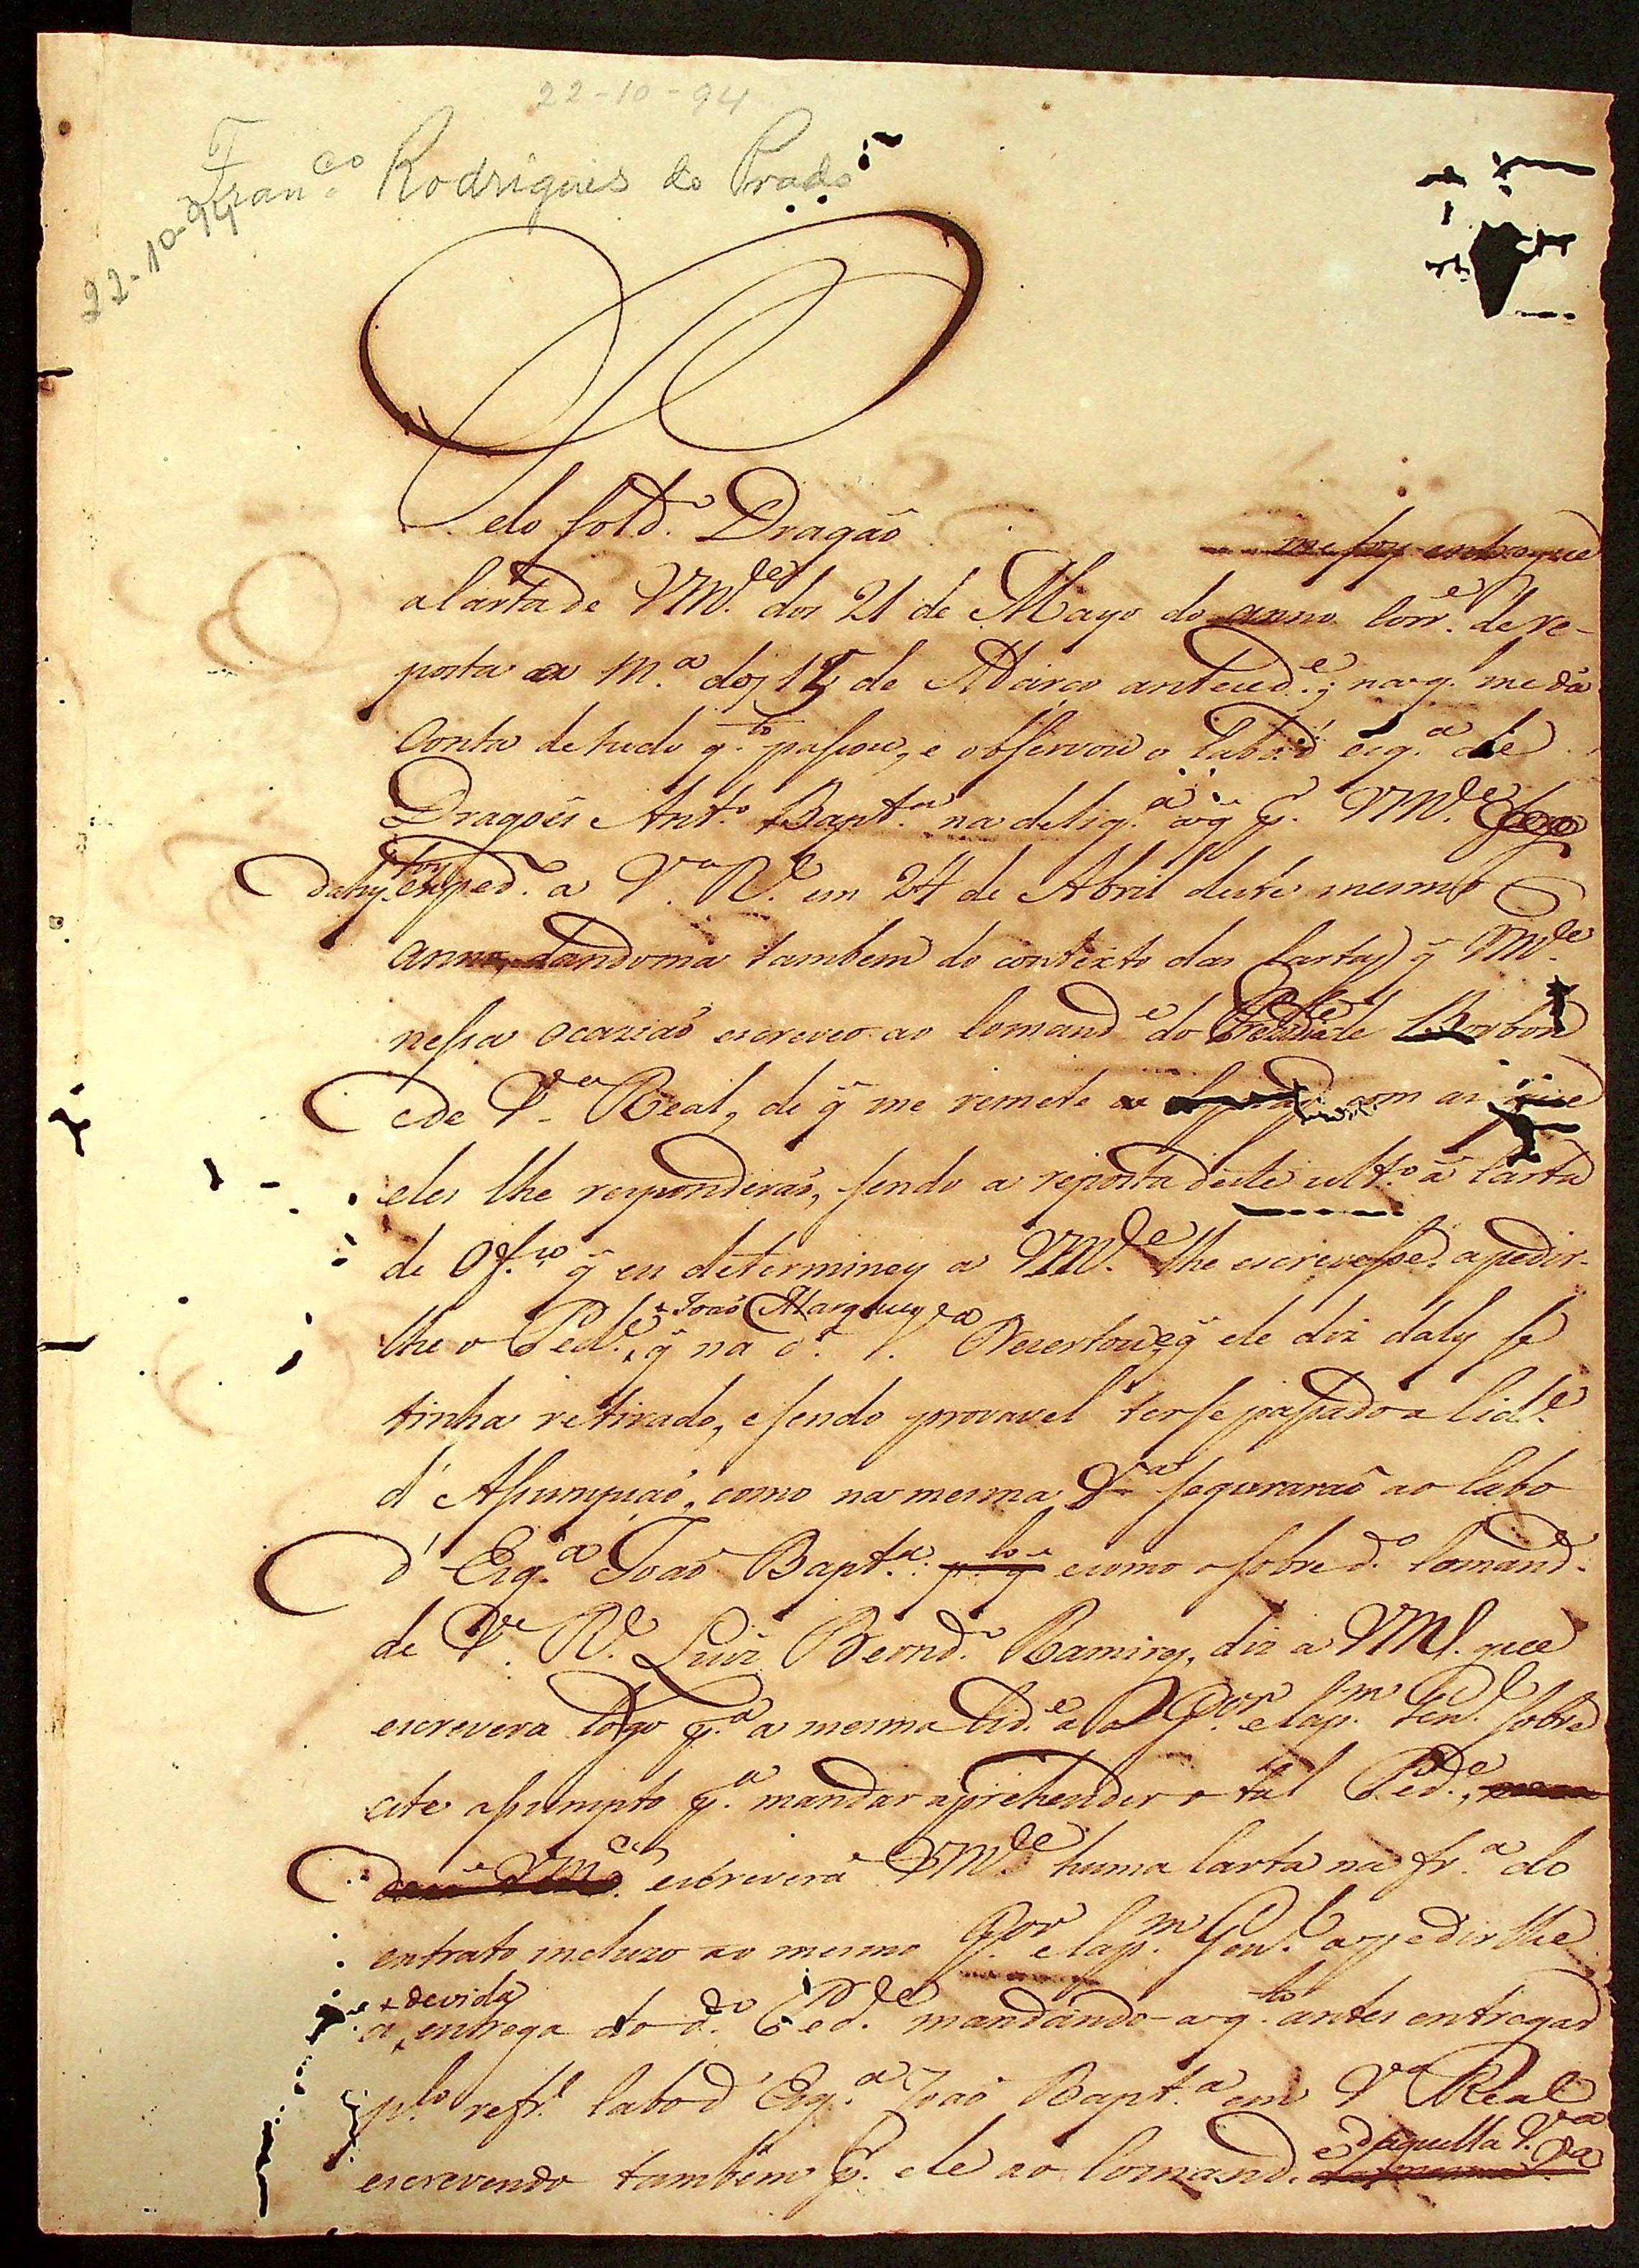 22-10-94
Fran.co Rodrigues do Prado
22-10-94
Pelo Sold.o Dragaõ me foy entregue
a Carta de VM.ce dos 21 de Mayo do anno Corr.e de re-
posta a m.a dos 15 de Março anteced.e; na q. me dá
Conta de tudo q.to passou, e observou o Cabo d'esq.a de
Dragoẽs Ant.o Bapt.a na delig.a a q̃ p.r VM.ce
dahy foy exped.o a V.a R.l em 24 de Abril deste mesmo
anno, dandoma tambem do contexto das Cartas q̃ VM.ce
nessa ocaziaõ escreveo ao Comand.e do de Borbon
e de V.a Real, de q̃ me remete as com as que
eles lhe responderaõ, sendo a reposta deste ult.o á Carta
de Off.o q̃ eu determiney a VM.ce lhe escrevesse, a pedir-
lhe o Ped.e João Marques q̃ na d.a V.a Dezertou, e q̃ ele diz daly se
tinha retirado, e sendo provavel terse passado a Cid.e
d'Assumpçaõ, como na mesma V.a seguraraõ ao Cabo
d'Esq.a Joaõ Bapt.a p.lo q̃ e como o sobred.o Comand.e
de V.a R.l Luiz Bernd.o Ramires, diz a VM.ce que
escrevera logo p.a a mesma Cid.e ao G.or e Cap.m Gen.l sobre
este assumpto p.a mandar aprehender o tal Ped.e,
VM.ce escreverá VM.ce huma Carta na fr.a do
extrato incluzo ao mesmo G.or e Cap.m Gen.l a pedir lhe
a devida entrega do d.o Ped.e mandando-a q.to antes entregar
p.lo refr.o Cabo d'Esq.a Joaõ Bapt.a em V.a Real
escrevendo tambem p.r ele ao Comand.e daquella V.a